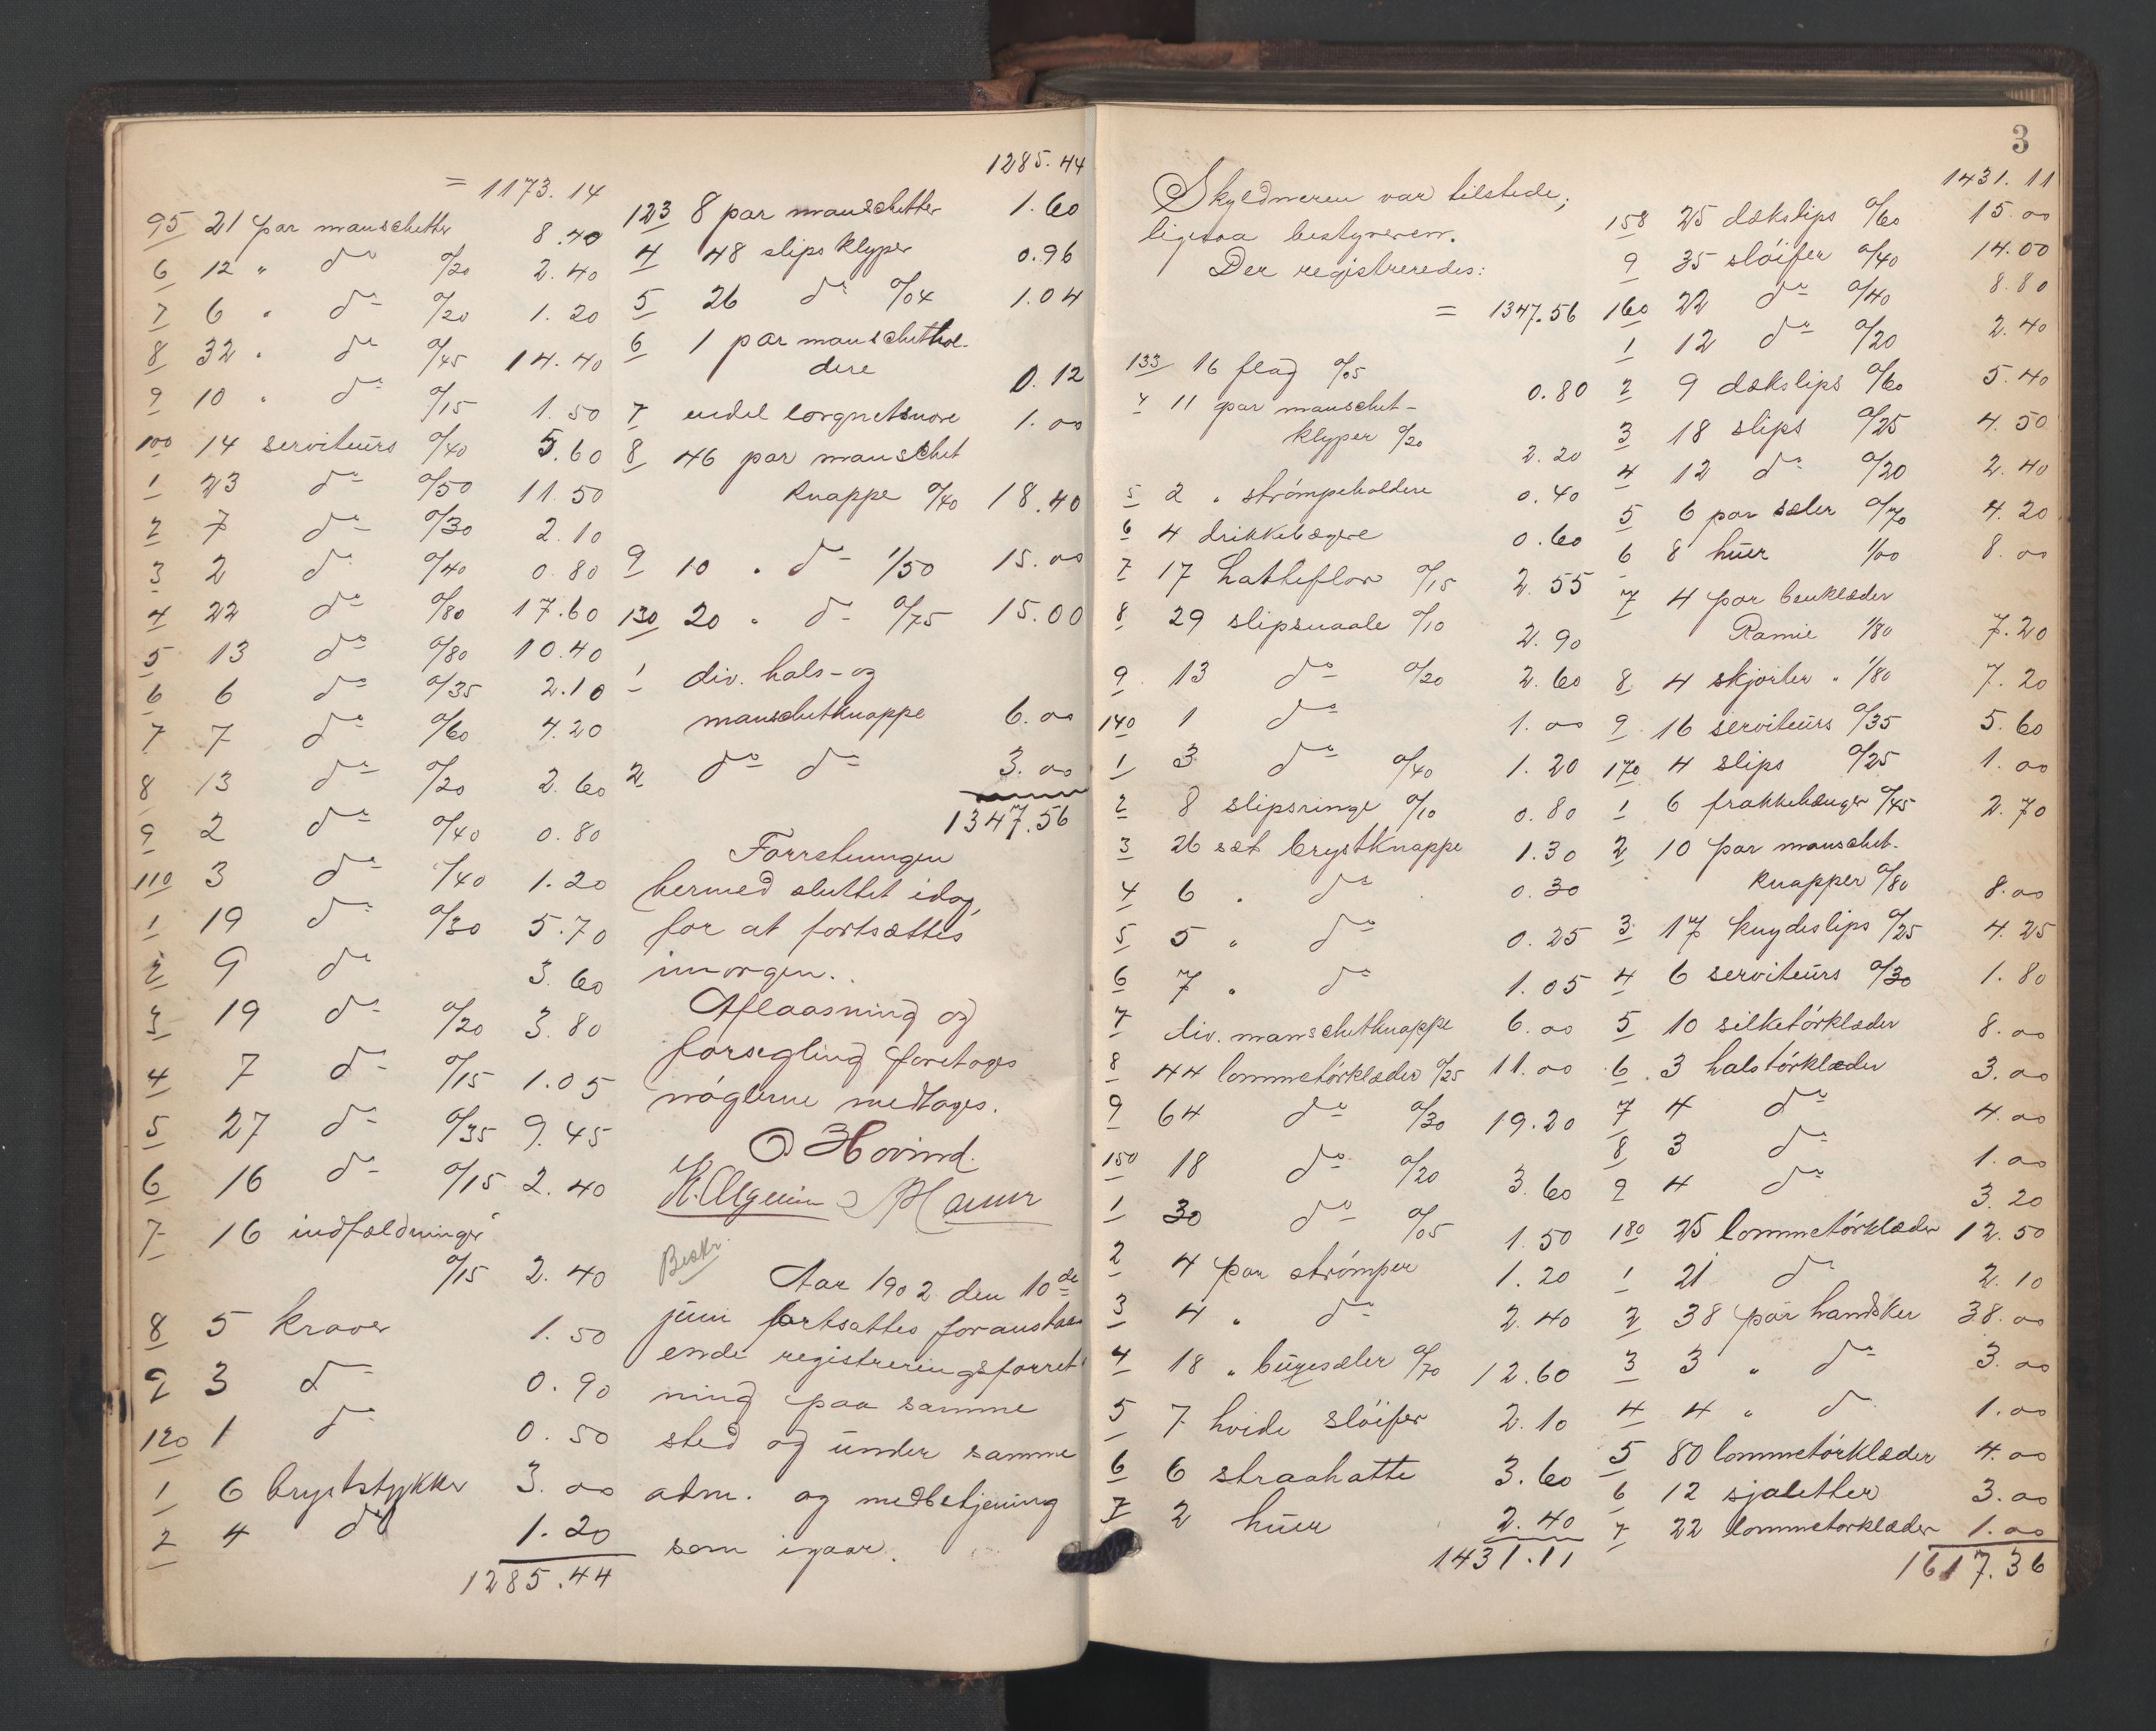 = 1173.14
95 21 par manschetter 8.40
6 12 " do 0/20 2.40
7 6 " do 0/20 1.20
8 32 " do 0/45 14.40
9 10 " do 0/15 1.50
100 14 serviteurs 0/40 5.60
1 23 do 0/50 11.50
2 7 do 0/30 2.10
3 2 do 0/40 0.80
4 22 do 0/80 17.60
5 13 do 0/80 10.40
6 6 do 0/35 2.10
7 7 do 0/60 4.20
8 13 do 0/20 2.60
9 2 do 0/40 0.80
110 3 do 0/40 1.20
1 19 do 0/30 5.70
2 9 do 3.60
3 19 do 0/20 3.80
4 7 do 0/15 1.05
5 27 do 0/35 9.45
6 16 do 0/15 2.40
7 16 indfældninger
0/15 2.40
8 5 kraver 1.50
9 3 do 0.90
120 1 do 0.50
1 6 bryststykker 3.00
2 4 do 1.20
1285.44
1285.44
123 8 par manschetter 1.60
4 48 slips klyper 0.96
5 26 do 0/04 1.04
6 1 par manschethol-
dere 0.12
7 endel lorgnetsnore 1.00
8 46 par manschet
knappe 0/40 18.40
9 10 " do 1/50 15.00
130 20 " do 0/75 15.00
1 div. hals- og
manschetknappe 6.00
2 do do 3.00
1347.56
Forretningen
hermed sluttet idag,
for at fortsættes
imorgen.
Aflaasning og
forsegling foretages
nøglerne medtages.
O Hovind.
Beskr.
Aar 1902 den 10de
juni fortsattes foranstaa
ende registreringsforret
ning paa samme
sted og under samme
adm. og medbetjening
som igaar.
3
Skyldneren var tilstede;
ligesaa bestyreren.
Der registreredes:
= 1347.56
133 16 flag 0/05 0.80
4 11 par manschet-
klyper 0/20 2.20
5 2 " strømpeholdere 0.40
6 4 drikkebægere 0.60
7 17 hatteflor 0/15 2.55
8 29 slipsnaale 0/10 2.90
9 13 do 0/20 2.60
140 1 do 1.00
1 3 do 0/40 1.20
2 8 slipsringe 0/10 0.80
3 26 sæt brystknappe 1.30
4 6 " do 0.30
5 5 " do 0.25
6 7 " do 1.05
7 div. manschetknappe 6.00
8 44 lommetørklæder 0/25 11.00
9 64 do 0/30 19.20
150 18 do 0/20 3.60
1 30 do 0/05 1.50
2 4 par strømper 1.20
3 4 " do 2.40
4 18 " buxesæler 0/70 12.60
5 7 hvide sløifer 2.10
6 6 straahatte 3.60
7 2 huer 2.40
1431.11
1431.11
158 25 dækslips 0/60 15.00
9 35 sløifer 0/40 14.00
160 22 do 0/40 8.80
1 12 do 0/20 2.40
2 9 dækslips 0/60 5.40
3 18 slips 0/25 4.50
4 12 do 0/20 2.40
5 6 par sæler 0/70 4.20
6 8 huer 1/00 8.00
7 4 par benklæder
Ramie 1/80 7.20
8 4 skjorter " 1/80 7.20
9 16 serviteurs 0/35 5.60
170 4 slips 0/25 1.00
1 6 frakkehænger 0/45 2.70
2 10 par manschet-
knapper 0/80 8.00
3 17 knydeslips 0/25 4.25
4 6 serviteurs 0/30 1.80
5 10 silketørklæder 8.00
6 3 halstørklæder 3.00
7 4 do 4.00
8 3 do 1.00
9 4 do 3.20
180 25 lommetørklæder 12.50
1 21 do 2.10
2 38 par handsker 38.00
3 3 " do 3.00
4 4 " do 1.00
5 80 lommetørklæder 4.00
6 12 sjaletter 3.00
7 22 lommetørklæder 1.00
1617.36